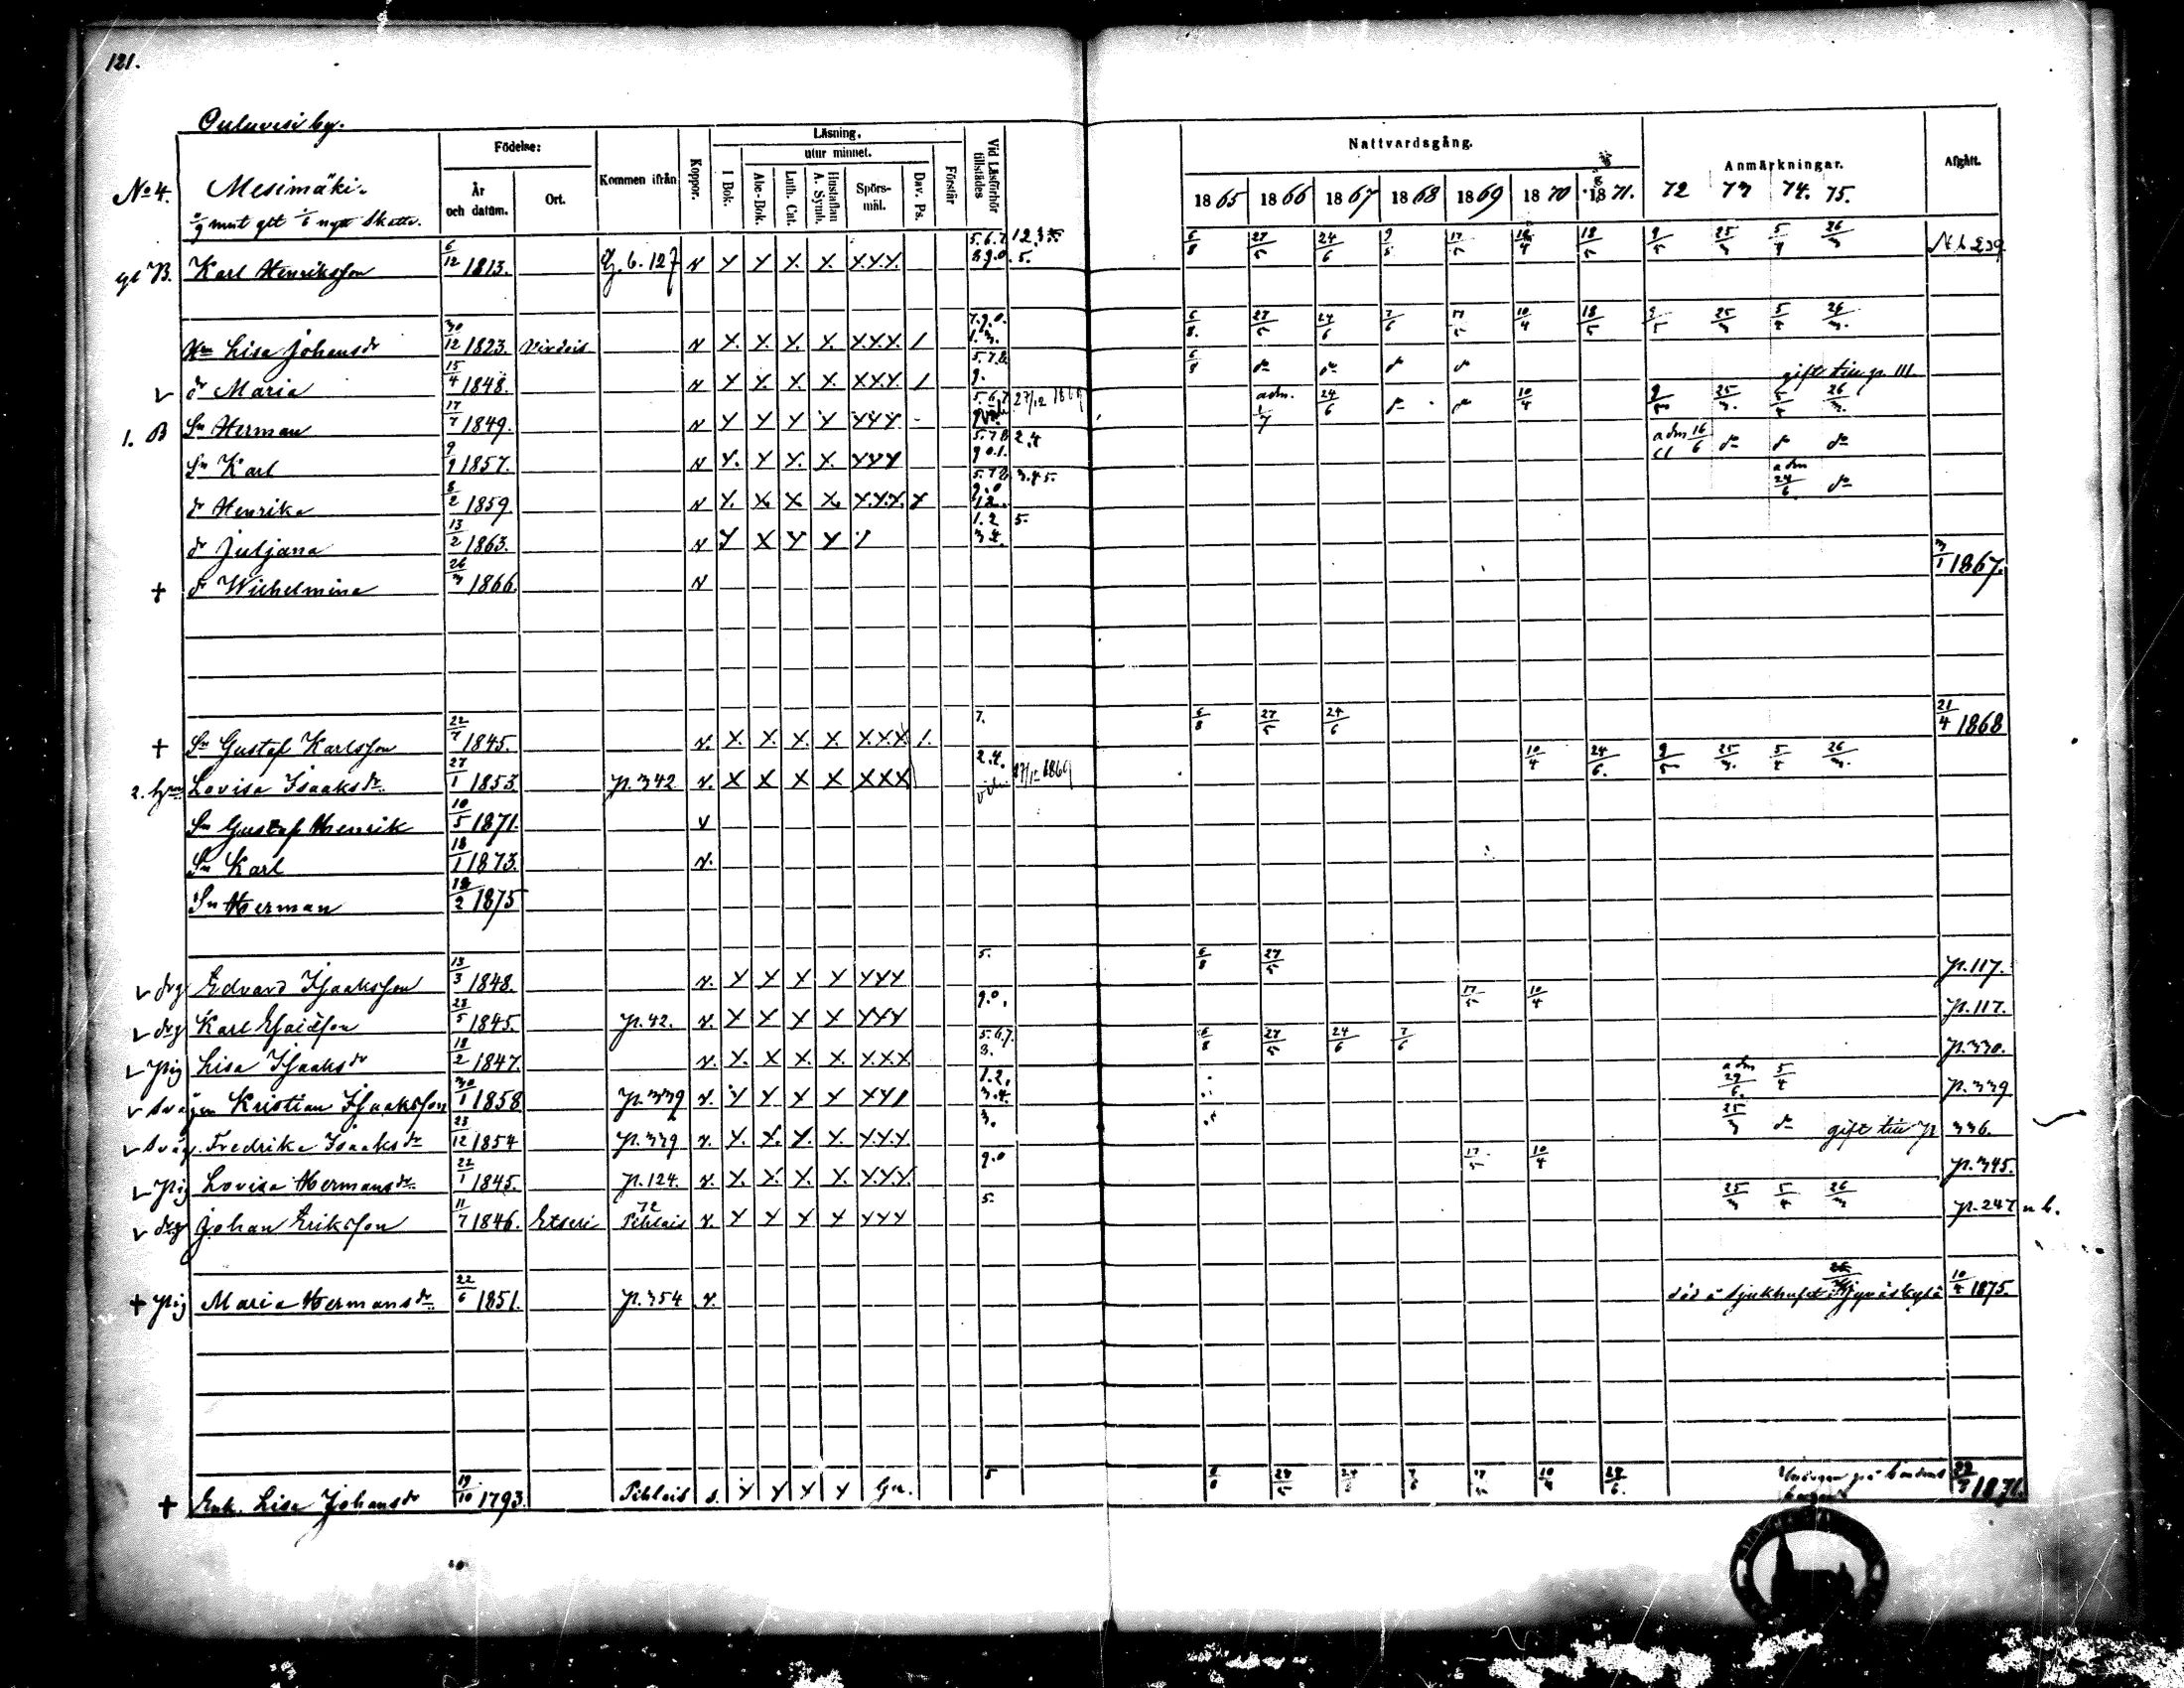 121.
Ouluvesi by.
Födelse: Läsning. Nattvardsgång. Anmärkningar. Afgått.
utur minnet.
No 4. Mesimäki. År och datum. Ort. Kommen ifrån Koppor. I Bok. Abc-Bok. Luth. Cat. Hustaflan A. Symb. Spörsmål. Dav. Ps. Förstår Vid Läsförhör tillstädes 1865 1866 1867 1868 1869 1870 1871. 72 73 74. 75.
mnt glt 1/6 nytt skatte.
gl B. Karl Henriksson 6/12 1813. G. b. 127 v X X X. X. X.X.X. 5.6.7. 8.9.0. 5. 6/8 27/5 24/6 17/5 18/5 9/5 25/3 5/4 26/3
Hu Lisa Johansdr 30/12 1823. Virdois v X. X. X. X. X.X.X. / 7.9.0. 1.3. 6/8 27/5 24/6 7/6 17/5 10/4 18/5 9/5 25/3 5/4 26/3.
v dr Maria 15/4 1848. v X X. X. X. X.X.X. / 5.7.8. 9. 6/8 do do do do gift till p. 111
1. B Sn Herman 17/7 1849. v X X X X XXX - 5.6.7 27/12 1869 adm. 24/6 do do 10/4 9/5 25/3. 5/4 26/3.
Sn Karl 9/9 1857. v X. X X. X. XXX 5.7.8. 9.0.1. 2.4 adm 16/6 do do do
dr Henrika 8/2 1859. v X. X. X X. X.X.X. X 5.7.8. 9.0 1.2. 3.4.5. adm 24/6. do
dr Juljana 13/2 1863. v X X X X / 1.2 3.4. 5.
+ dr Wilhelmina 26/3 1866. v 3/1 1867.
+ Sn Gustaf Karlsson 22/7 1845. v. X. X. X. X. X.X.X. /. 7. 6/8 27/5 24/6 21/4 1868
2. hu Lovisa Isaaksdr. 27/1 1853 p. 342. v. X X X X XXX 2.4. 27/12 1869 10/4 24/6. 9/5 25/3. 5/4 26/3.
Sn Gustaf Henrik 10/5 1871. v
Sn Karl 18/1 1873. v.
Sn Herman 2 1875
v drg Edvard Isaaksson 13/3 1848. v. X X X X XXX 5. 6/8 27/5 p. 117.
v drg Karl Esaiasson 28/5 1845. p. 42. v. X X X X XXX 9.0. 17/5 10/4 p. 117.
v pig Lisa Isaaksdr 18/2 1847. v. X. X. X. X. X.X.X 5.6.7. 8. 6/8 27/5 24/6 7/6 p. 330.
v svågern Kristian Isaaksson 30/1 1858 p. 339 v. X X X X XX/ 1.2. 3.4. adm 29/6. 5/4 p. 339
v sväg. Fredrika Isaaksdr 23/12 1854 p. 339 v. X. X. X. X. X.X.X 3. 25/3 do gift till p 336.
v pig Lovisa Hermansdr. 22/1 1845. p. 124. v. X. X. X. X. X.X.X. 9.0 17/5 10/4 p. 345.
v drg Johan Eriksson 11/7 1846. Etseri 72 Pihlais v. X X X X XXX 5. 25/3 5/4 26/3 p. 247 n b.
+ pig Maria Hermansdr 22/6 1851. p. 354 v. död å sjukhuset i Jyväskylä 10/4 1875.
+ Enk. Lisa Johansdr 19/10 1793. Pihlais v. X X X X Gn. 5 6/8 27/5 24/6 7/6 17/5 10/4 24/6.